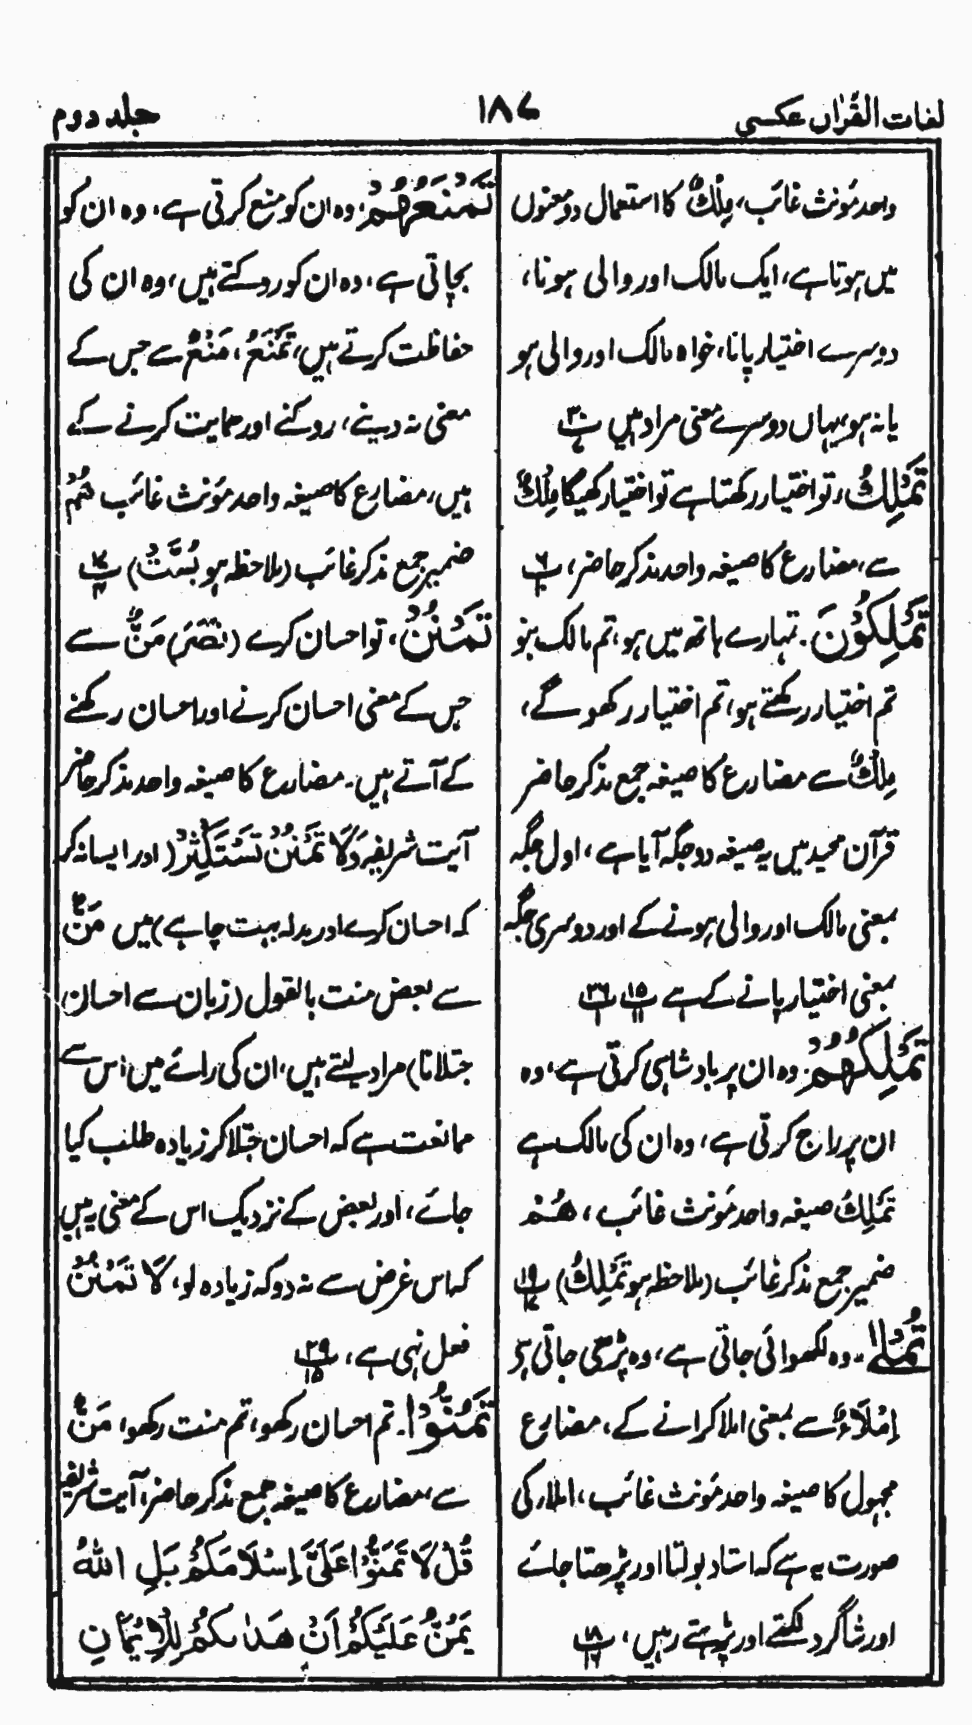 لغات القرآن عکسی
۱۸۷
جلد دوم
واحد مؤنث غائب، مِلْكٌ کا استعمال دو معنوں
میں ہوتا ہے، ایک مالک اور والی ہونا،
دوسرے اختیار پانا، خواہ مالک اور والی ہو
یا نہ ہو، یہاں دوسرے معنی مراد ہیں
تَمْلِكُ، تو اختیار رکھتا ہے تو اختیار رکھیگا مِلْكٌ
سے، مضارع کا صیغہ واحد مذکر حاضر،
تَمْلِكُوْنَ۔ تمہارے ہاتھ میں ہو، تم مالک بنو
تم اختیار رکھتے ہو، تم اختیار رکھو گے،
مِلْكٌ سے مضارع کا صیغہ جمع مذکر حاضر
قرآن مجید میں یہ صیغہ دو جگہ آیا ہے، اول جگہ
بمعنی مالک اور والی ہونے کے اور دوسری جگہ
بمعنی اختیار پانے کے ہے ۱۵/۱۱
تَمْلِكُهُمْ۔ وہ ان پر بادشاہی کرتی ہے، وہ
ان پر راج کرتی ہے، وہ ان کی مالک ہے
تَمْلِكُ صیغہ واحد مؤنث غائب، هُمْ
ضمیر جمع مذکر غائب (ملاحظہ ہو تَمْلِكُ) ۱۹/۱۷
تُمْلٰى۔ وہ لکھوائی جاتی ہے، وہ پڑھی جاتی ہے
اِمْلَاءٌ سے بمعنی املا کرانے کے، مضارع
مجہول کا صیغہ واحد مؤنث غائب، املاء کی
صورت یہ ہے کہ استاد بولتا اور پڑھتا جائے
اور شاگرد لکھتے اور پڑھتے رہیں، ۱۸/۱۶
تَمْنَعُهُمْ، وہ ان کو منع کرتی ہے، وہ ان کو
بچاتی ہے، وہ ان کو روکتے ہیں، وہ ان کی
حفاظت کرتے ہیں، تَمْنَعُ، مَنْعٌ سے جس کے
معنی نہ دینے، روکنے اور حمایت کرنے کے
ہیں، مضارع کا صیغہ واحد مؤنث غائب هُمْ
ضمیر جمع مذکر غائب (ملاحظہ ہو بُسَّتْ)
تَمْنُنْ، تو احسان کرے (نَصَرَ) مَنٌّ سے
جس کے معنی احسان کرنے اور احسان رکھنے
کے آتے ہیں۔ مضارع کا صیغہ واحد مذکر حاضر
آیت شریفہ وَلَا تَمْنُنْ تَسْتَكْثِرُ (اور ایسا نہ کر
کہ احسان کرے اور بدلہ بہت چاہے) میں مَنٌّ
سے بعض منت بالقول (زبان سے احسان
جتلانا) مراد لیتے ہیں، ان کی رائے میں اس سے
ممانعت ہے کہ احسان جتلا کر زیادہ طلب کیا
جائے، اور بعض کے نزدیک اس کے معنی یہ ہیں
کہ اس غرض سے نہ دو کہ زیادہ لو، لَا تَمْنُنْ
فعل نہی ہے، ۲۹/۱۵
تَمُنُّوْا۔ تم احسان رکھو، تم منت رکھو، مَنٌّ
سے، مضارع کا صیغہ جمع مذکر حاضر، آیت شریفہ
قُلْ لَا تَمُنُّوْا عَلَيَّ اِسْلَامَكُمْ بَلِ اللهُ
يَمُنُّ عَلَيْكُمْ اَنْ هَدٰىكُمْ لِلْاِيْمَانِ